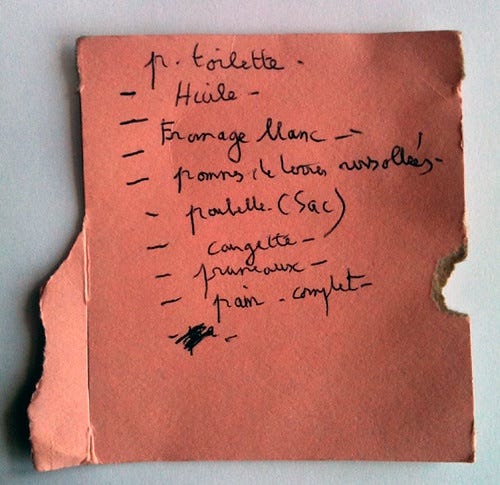 p. toilette -
- Huile -
- Fromage blanc -
- pommes de terres rissollées -
- poubelle (Sac)
- courgette -
- pruneaux -
- pain - complet -